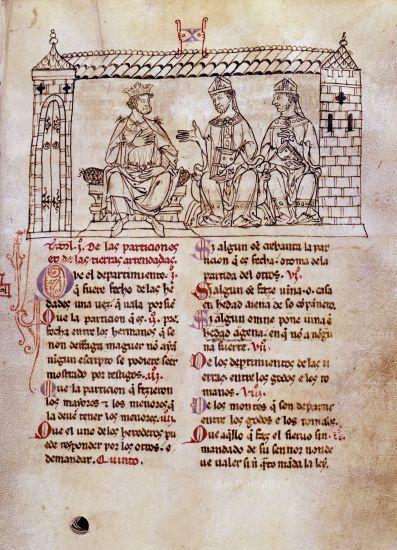 X
Titol .i. De las particiones
et de las tierras arrendadas.
Que el departimento .i.
q̄ fuere fecho de las he
dades una uez. q̄ uala por siē
Que la particion q̄ es .ii. p̄r
fecha entre los hermanos q̄ se
non desfaga maguer nō aya
ningun escripto se podiere seer
mostrado por testigos. iii.
Que la particion q̄ fizieron
los mayores τ los menores q̄
la deuē tener los menores. iiii.
Que el uno de los herederos pu
ede responder por los otros. e
demandar. Quinto.
Si algun ōe crebanta la par
ticion q̄ es fecha. o toma de la
partida del otros. vi.
Si algun ōe faze uina. o. casa
en heredad aiena de so cōpānero.
Si algun ōe pone uina ē
heredad agena. en q̄ nō a nēgu
na suerte. vii.
De los deptimentos de las ti
erras entre los godos e los ro
manos. viii.
De los montes q̄ son de partir
entre los godos e los romaīs.
Que aq̄llo q̄ faz el sieruo sin
mandado de su sennor nonde
ue ualer si nō q̄nto māda la ley.